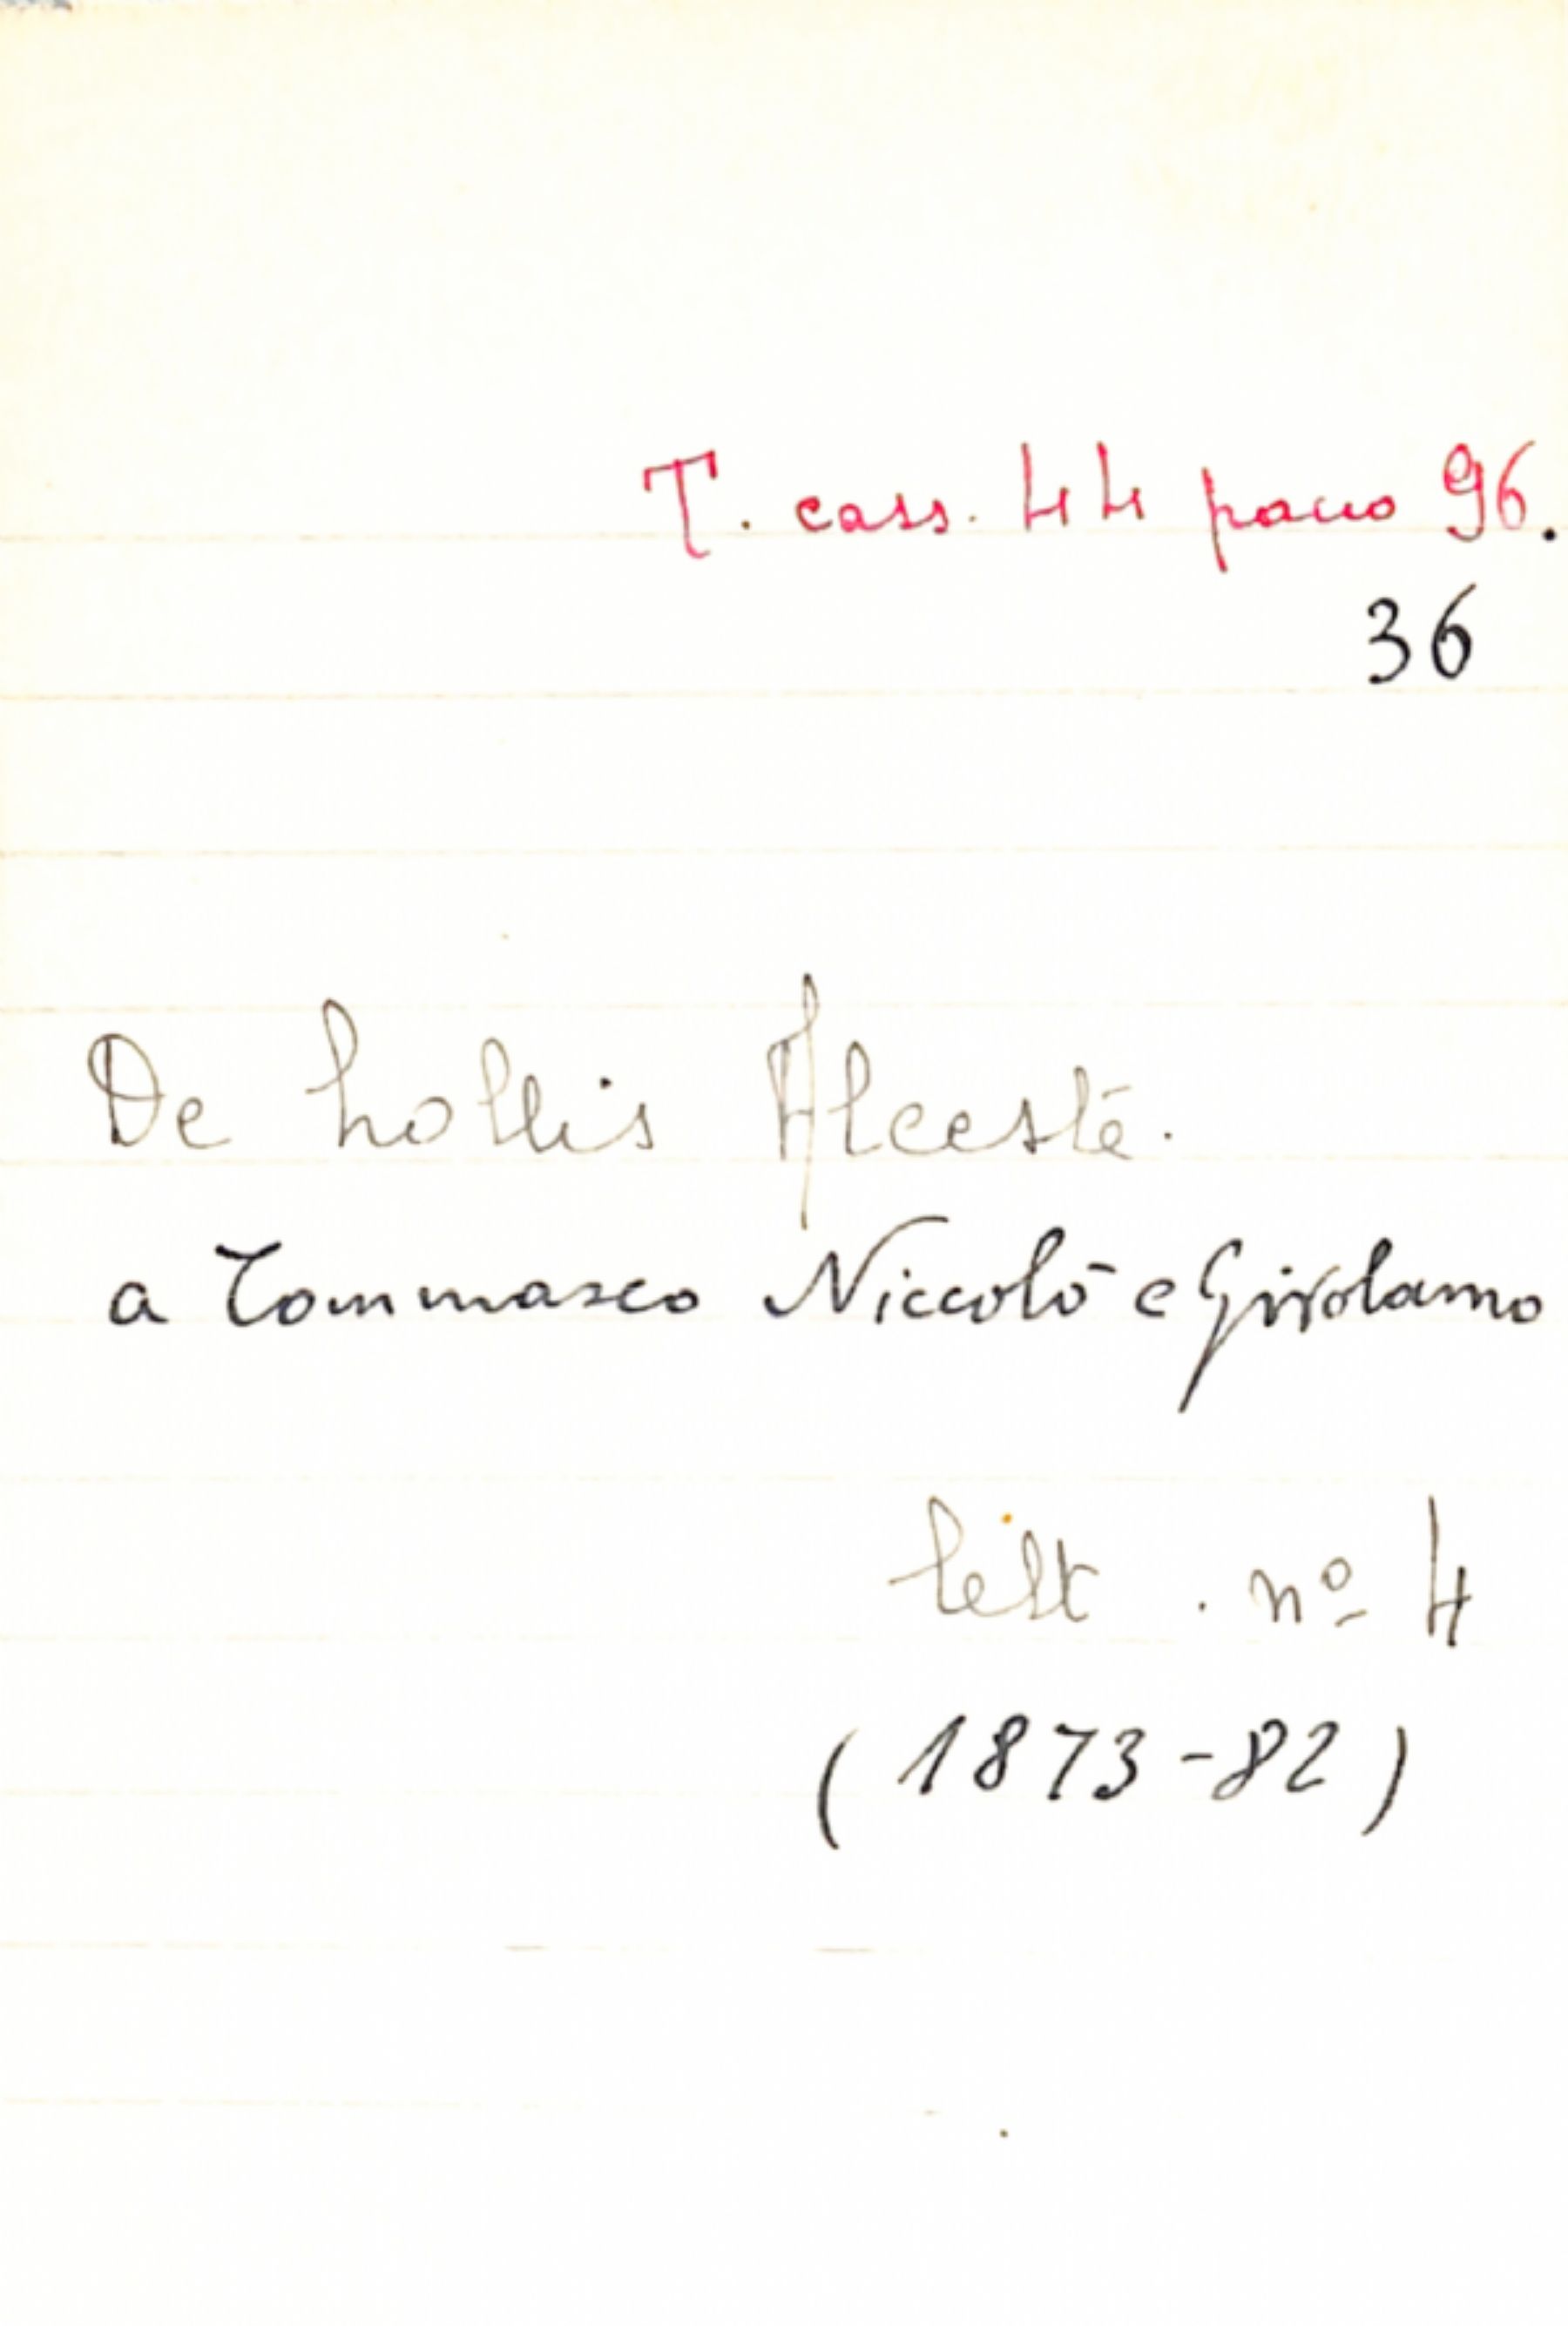 T. cass. 44 pacco 96.
36
De Lollis Alceste.
a Tommaseo Niccolò e Girolamo
lett. nº 4
(1873-82)